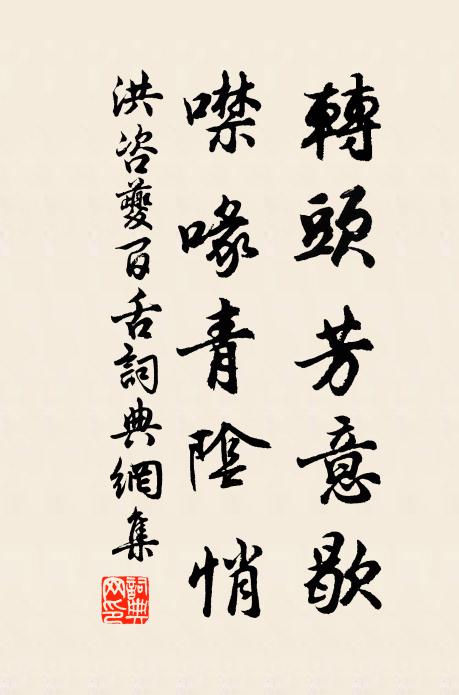 轉頭芳意歇
噤喙青陰悄
洪咨夔百舌詞典網集
詞典網印